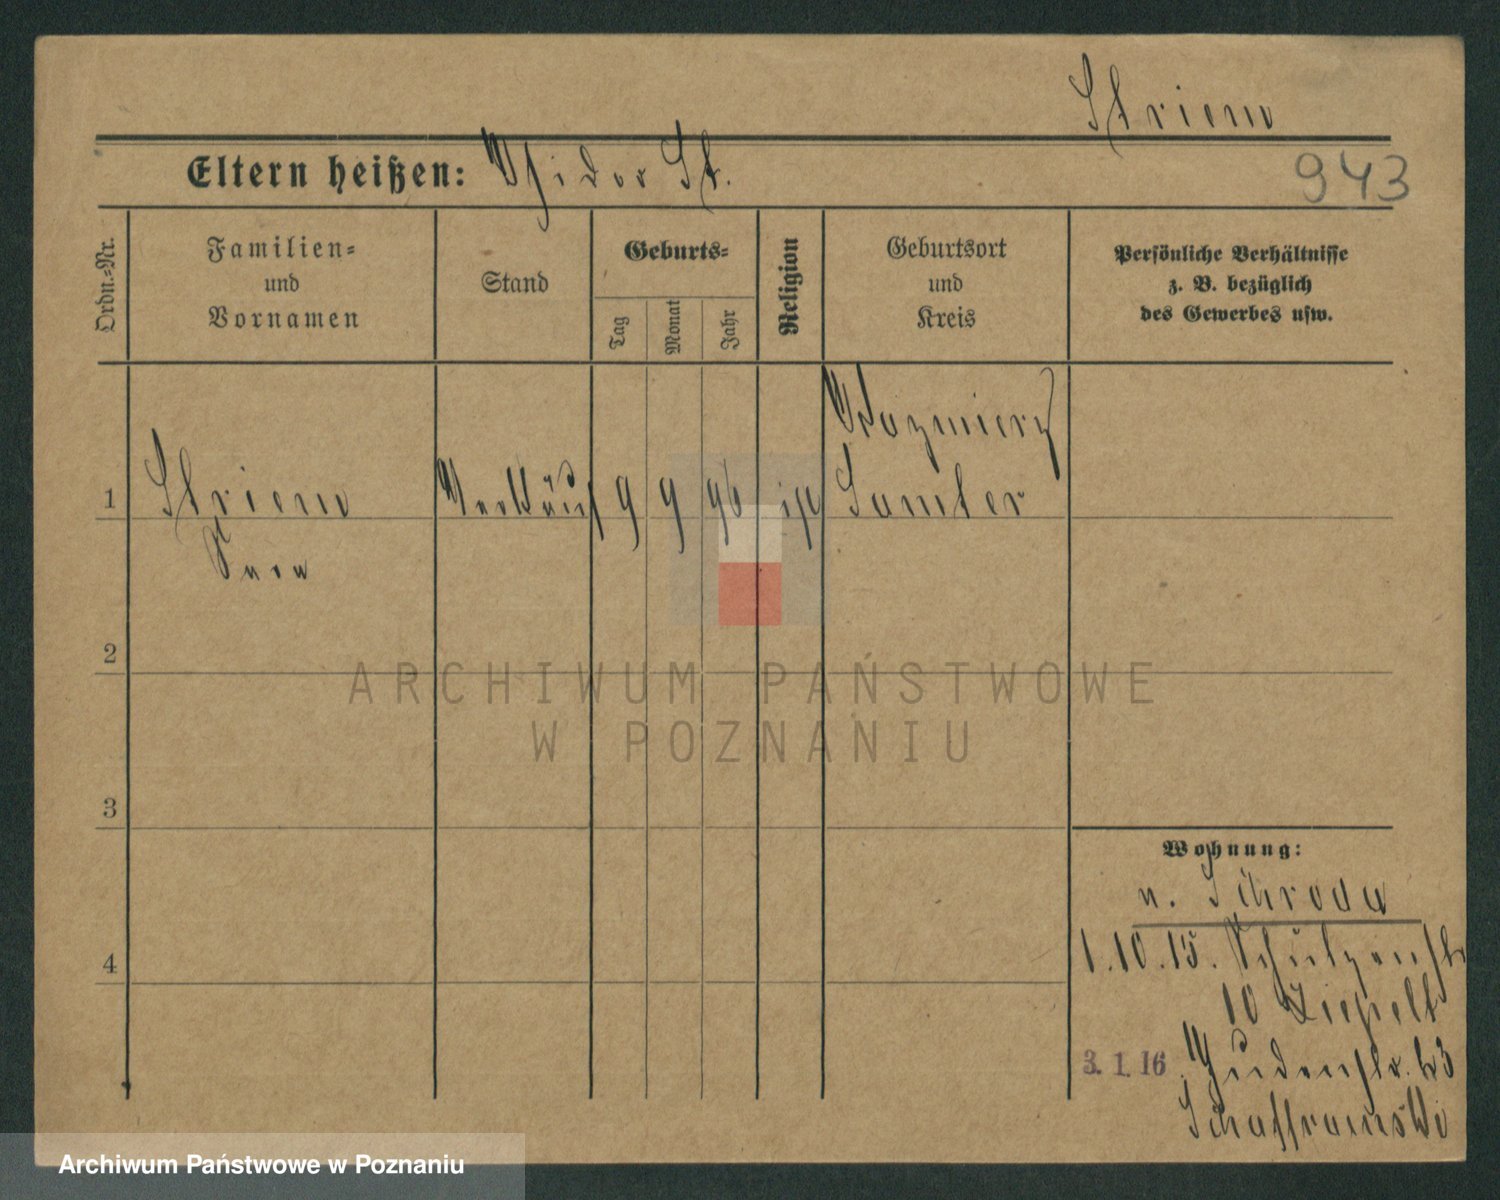 Striem
Eltern heißen: Isidor St.
943
Ordn.=Nr.
Familien=
und
Vornamen
Stand
Geburts=
Tag
Monat
Jahr
Religion
Geburtsort
und
Kreis
Persönliche Verhältnisse
z. B. bezüglich
des Gewerbes usw.
Kazmierz
1 Striem Verkäuf 9 9 96 Samter
2
3
4
Wohnung:
n. Schroda
1.10.15. Schulzenstr
10 Ziepelt
3. 1. 16 Judenstr.
ARCHIWUM PAŃSTWOWE
W POZNANIU
Archiwum Państwowe w Poznaniu